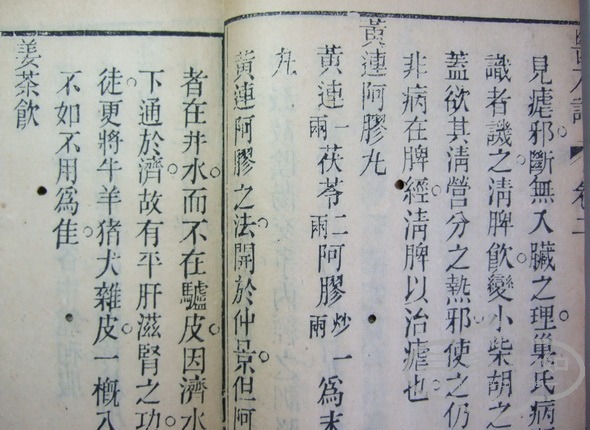 卷二
見瘧邪。斷無入臟之理。巢氏病
識者譏之。清脾飮。變小柴胡之
蓋欲其清營分之熱邪。使之仍
非病在脾經。清脾以治瘧也。
黃連阿膠丸
黃連一兩茯苓二兩阿膠炒一兩爲末
丸
黃連阿膠之法。開於仲景。但阿
者在井水。而不在驢皮。因濟水
下通於濟。故有平肝滋腎之功。
徒更將牛羊猪犬雜皮。一槪入
不如不用爲佳。
姜茶飮